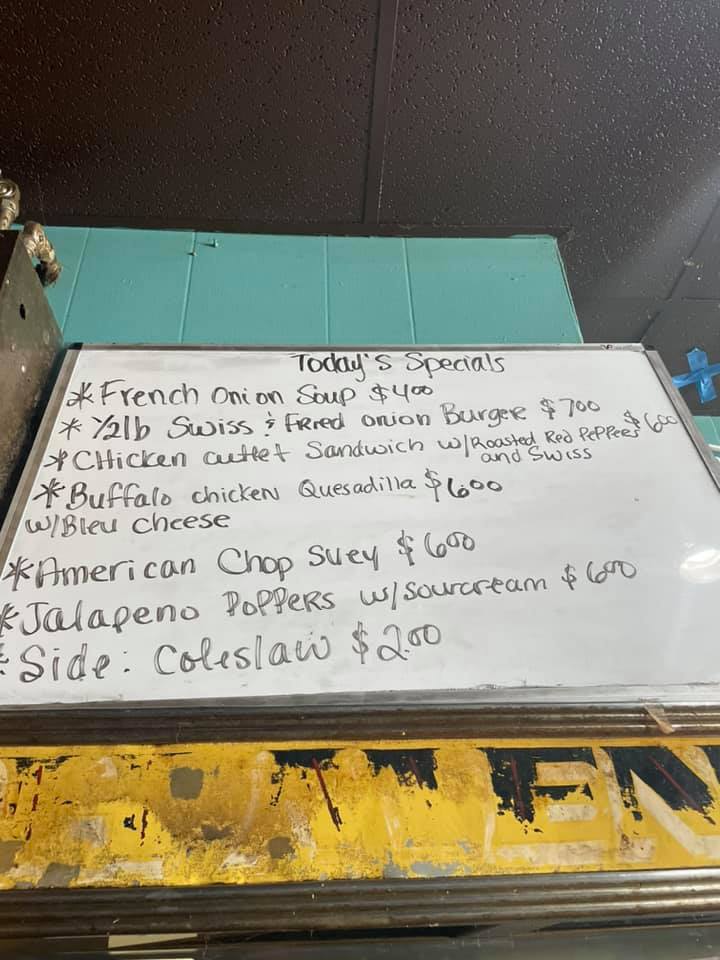 Today's Specials
* French Onion Soup $4.00
* 1/2lb Swiss & Fried onion Burger $7.00
* CHicken cutlet Sandwich w/Roasted Red PePPers $6.00
and Swiss
* Buffalo chicken Quesadilla $6.00
w/Bleu cheese
* American Chop Suey $6.00
* Jalapeno PoPPeRs w/sourcream $6.00
* Side: Coleslaw $2.00